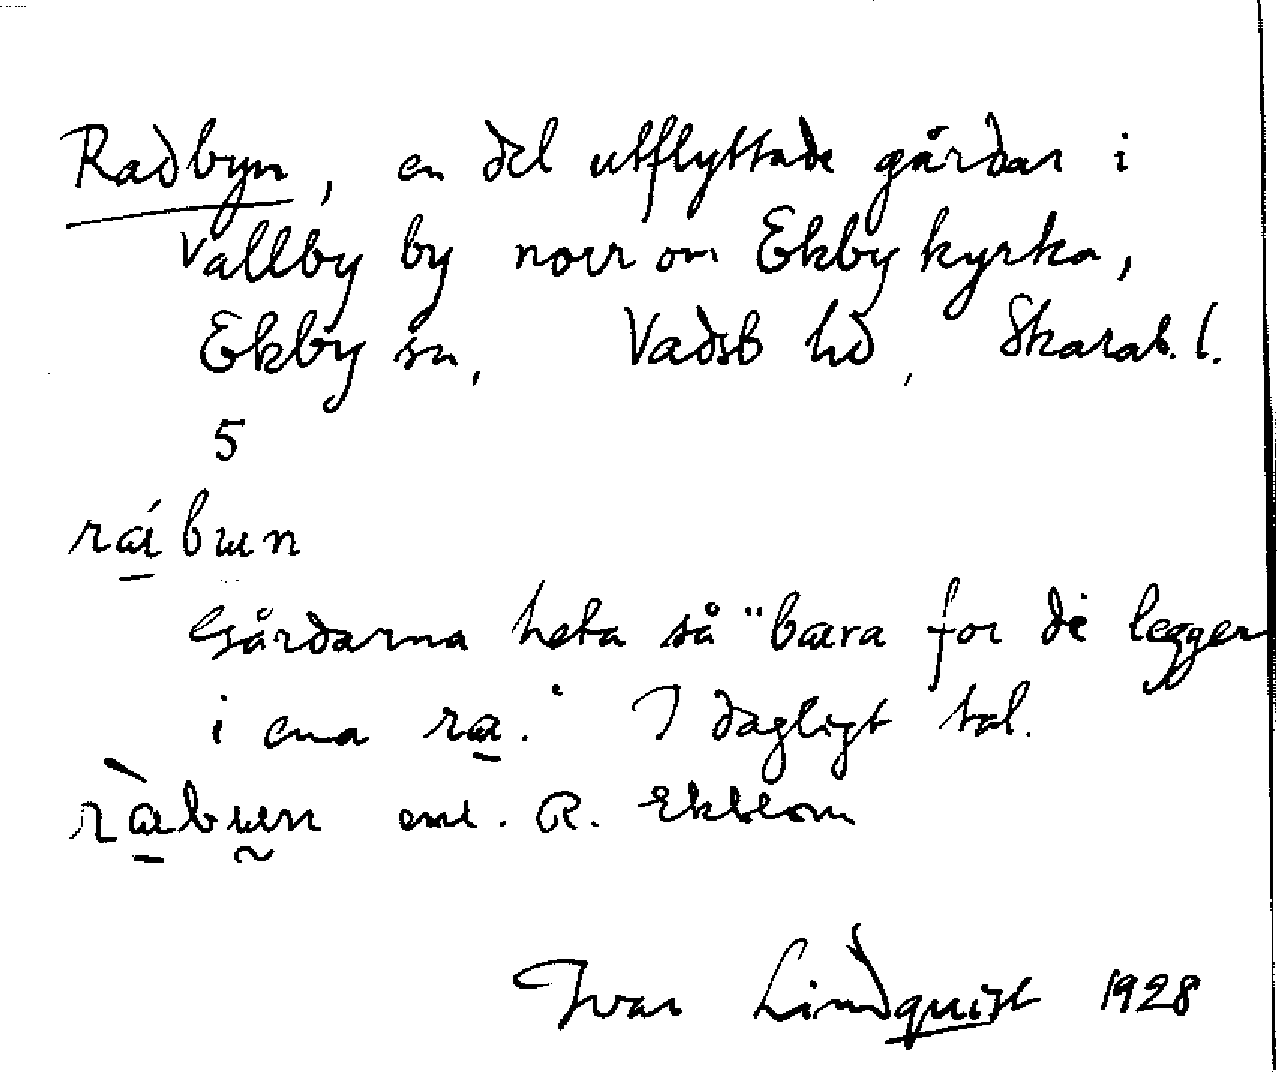 Radbyn, en del utflyttade gårdar i
Vallby by norr om Ekby kyrka,
Ekby sn, Vadsb hd, Skarab. l.
5
rábɯn
Gårdarna heta så "bæra för dè legger
i ena ra̱." I dagligt tal.
ràbɯn enl. R. Ekblom
Ivar Lindquist 1928